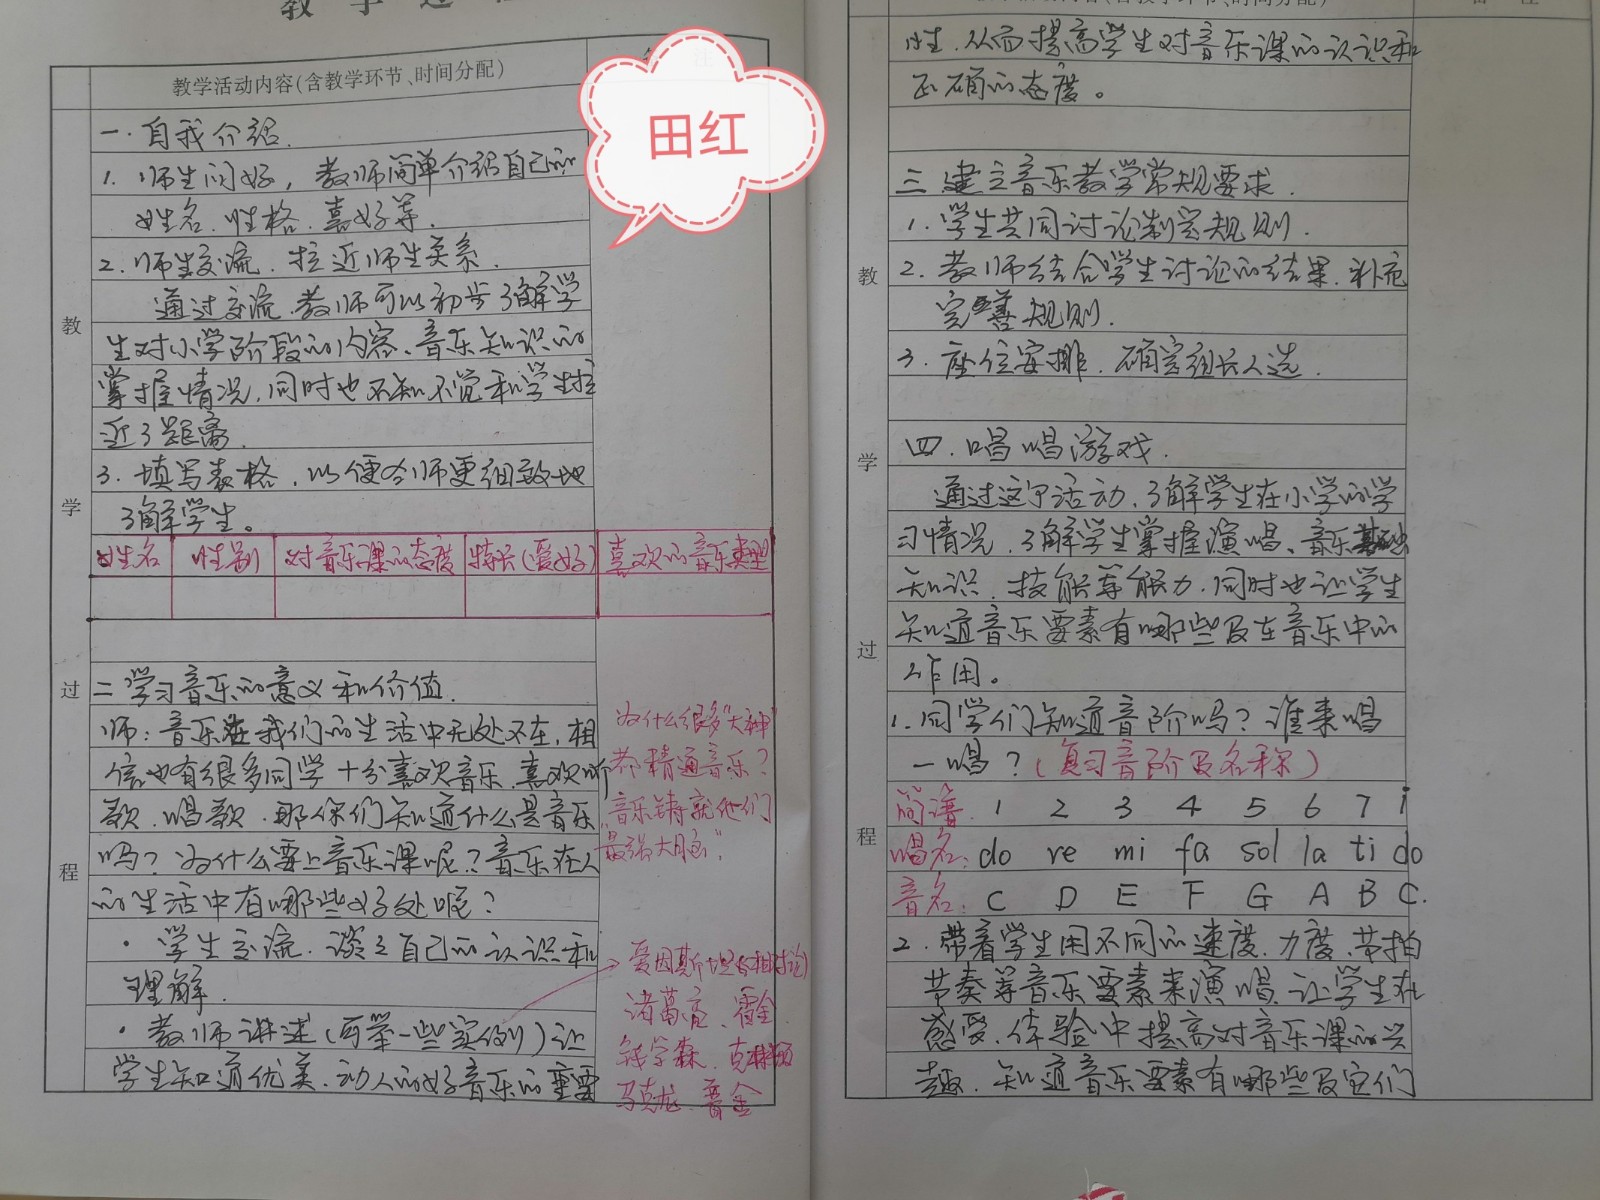 教学过程
教学活动内容(含教学环节、时间分配)
田红
一.自我介绍.
1. 师生问好，教师简单介绍自己的
姓名、性格、喜好等.
2.师生交流、拉近师生关系.
通过交流、教师可以初步了解学
生对小学阶段的内容、音乐知识的
掌握情况,同时也不知不觉和学生拉
近了距离.
3.填写表格，以便令师更细致地
了解学生。
姓名 性别 对音乐课的态度 特长(爱好) 喜欢的音乐类型
二学习音乐的意义和价值.
师:音乐在我们的生活中无处不在,相
信也有很多同学十分喜欢音乐,喜欢听
歌、唱歌、那你们知道什么是音乐
吗？为什么要上音乐课呢？音乐在人
的生活中有哪些好处呢？
·学生交流、谈谈自己的认识和
理解.
·教师讲述(可举一些实例)让
学生知道优美、动人的好音乐的重要
为什么很多"大神"
都精通音乐？
"音乐铸就他们
最强大脑"
爱因斯坦的相对论
诸葛亮、霍金
钱学森、克林顿
马克龙、普金
教
学
过
程
性,从而提高学生对音乐课的认识和
正确的态度。
三 建立音乐教学常规要求.
1.学生共同讨论制定规则.
2.教师结合学生讨论的结果,补充
完善规则.
3.座位安排、确定组长人选.
四.唱唱游戏.
通过这个活动,了解学生在小学的学
习情况、了解学生掌握演唱、音乐基础
知识、技能等能力,同时也让学生
知道音乐要素有哪些及在音乐中的
作用。
1.同学们知道音阶吗？谁来唱
一唱？(复习音阶及名称)
简谱: 1 2 3 4 5 6 7 i
唱名: do re mi fa sol la ti do
音名: C D E F G A B C.
2.带着学生用不同的速度、力度、节拍
节奏等音乐要素来演唱,让学生在
感受、体验中提高对音乐课的兴
趣、知道音乐要素有哪些及它们
教
学
过
程